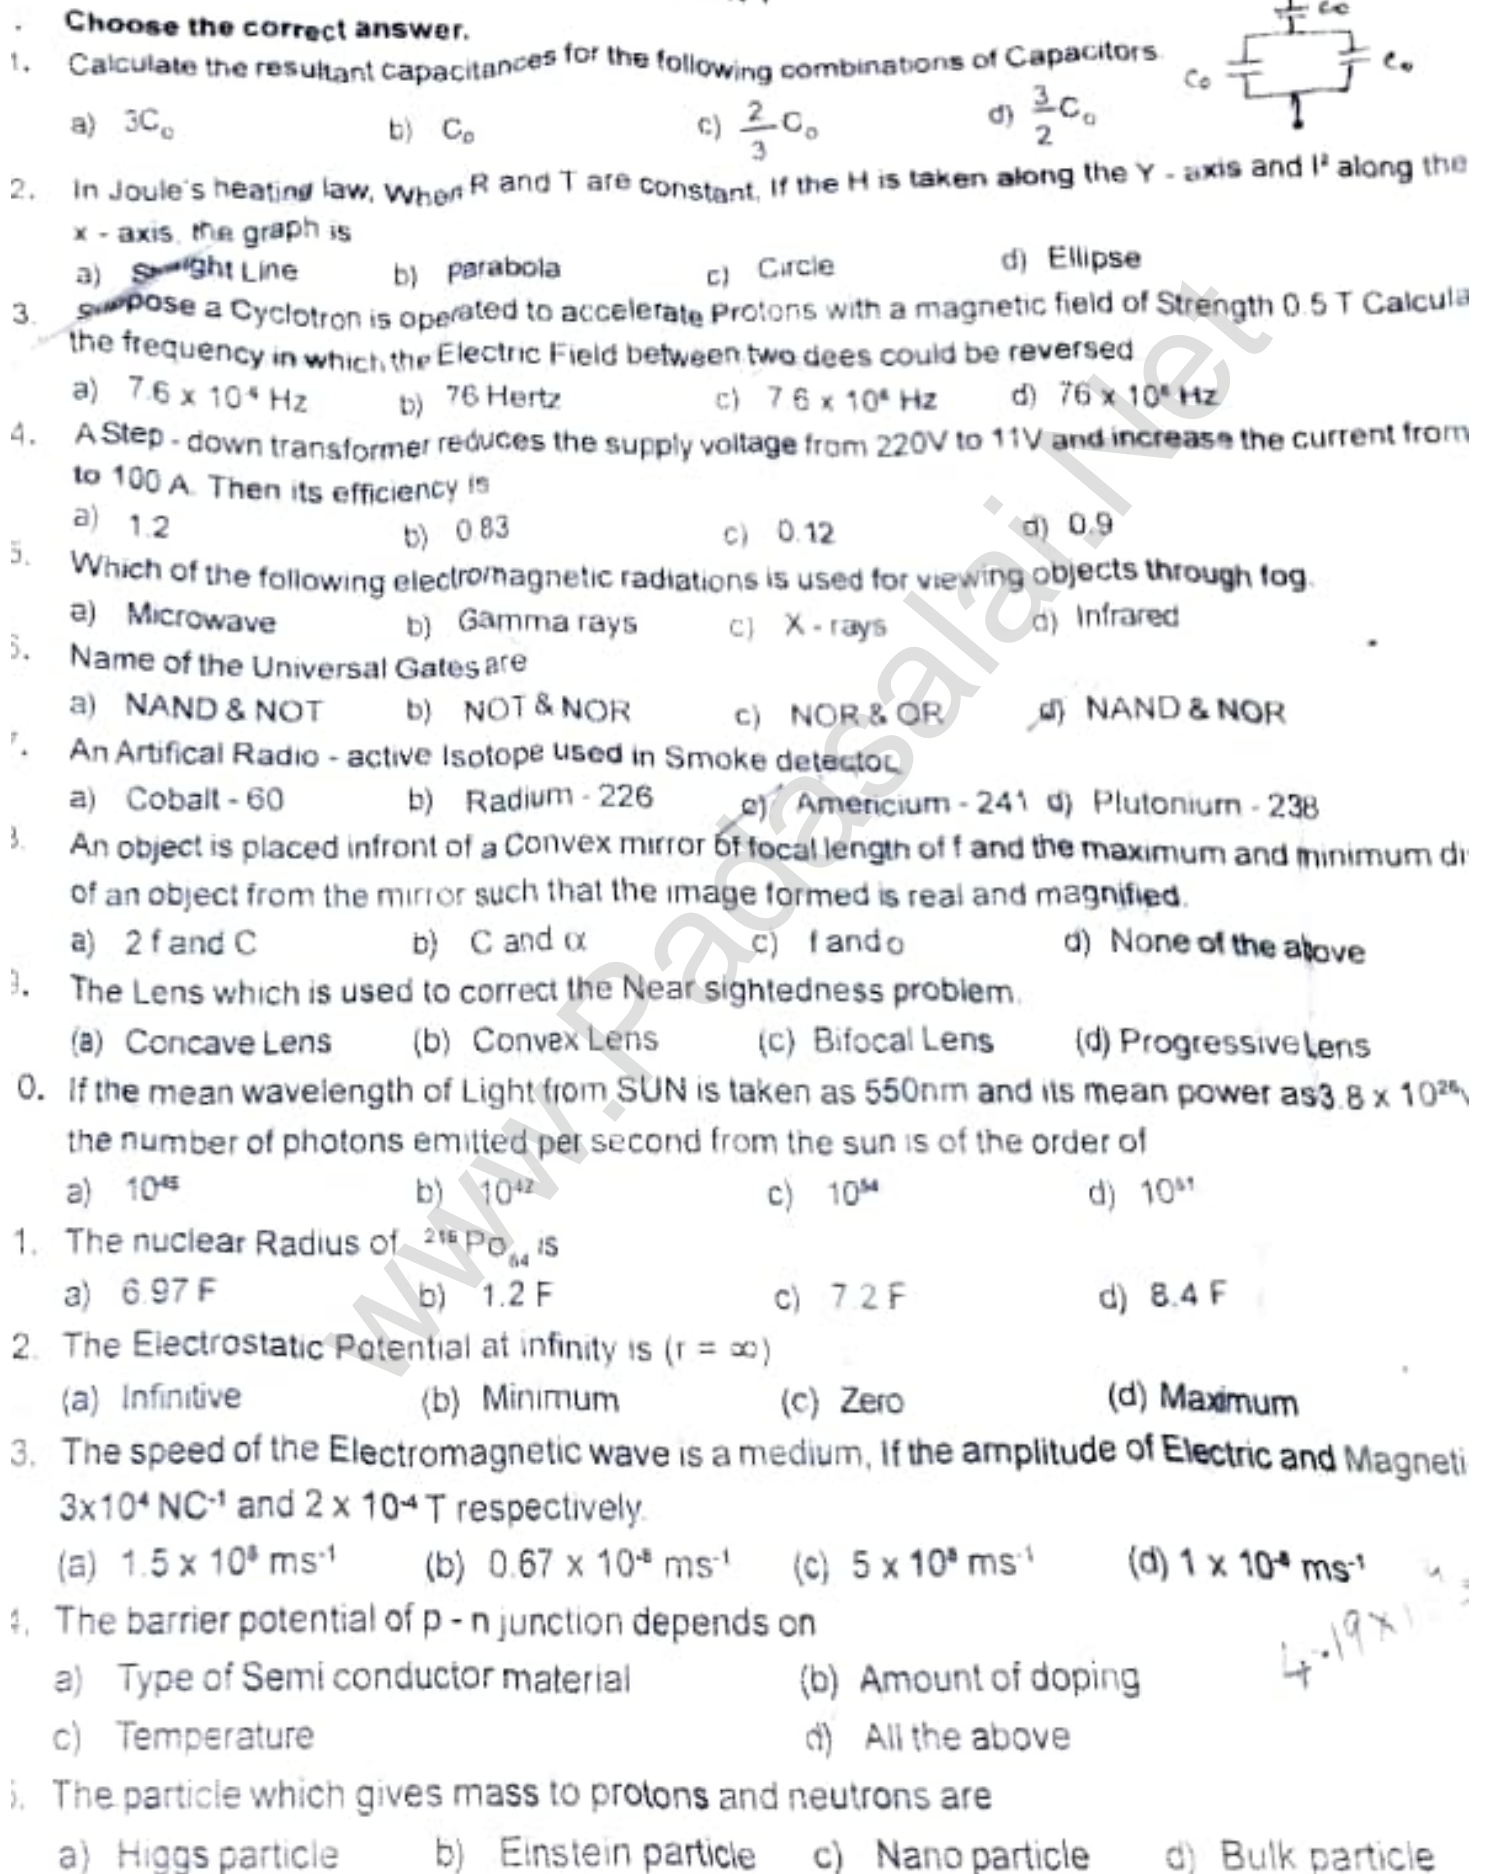 Choose the correct answer.
1. Calculate the resultant capacitances for the following combinations of Capacitors.
C₀ C₀ C₀
a) 3C₀ b) C₀ c) 2/3 C₀ d) 3/2 C₀
2. In Joule's heating law, When R and T are constant, If the H is taken along the Y - axis and I² along the
x - axis, the graph is
a) Straight Line b) parabola c) Circle d) Ellipse
3. Suppose a Cyclotron is operated to accelerate Protons with a magnetic field of Strength 0.5 T Calcula
the frequency in which the Electric Field between two dees could be reversed
a) 7.6 x 10⁴ Hz b) 76 Hertz c) 7.6 x 10⁶ Hz d) 76 x 10⁶ Hz
4. A Step - down transformer reduces the supply voltage from 220V to 11V and increase the current from
to 100 A. Then its efficiency is
a) 1.2 b) 0.83 c) 0.12 d) 0.9
5. Which of the following electromagnetic radiations is used for viewing objects through fog.
a) Microwave b) Gamma rays c) X - rays d) Infrared
6. Name of the Universal Gates are
a) NAND & NOT b) NOT & NOR c) NOR & OR d) NAND & NOR
7. An Artifical Radio - active Isotope used in Smoke detector
a) Cobalt - 60 b) Radium - 226 c) Americium - 241 d) Plutonium - 238
8. An object is placed infront of a Convex mirror of focal length of f and the maximum and minimum di
of an object from the mirror such that the image formed is real and magnified.
a) 2 f and C b) C and α c) f and o d) None of the above
9. The Lens which is used to correct the Near sightedness problem.
(a) Concave Lens (b) Convex Lens (c) Bifocal Lens (d) Progressive Lens
0. If the mean wavelength of Light from SUN is taken as 550nm and its mean power as 3.8 x 10²⁶
the number of photons emitted per second from the sun is of the order of
a) 10⁴⁵ b) 10⁴² c) 10⁵⁴ d) 10⁵¹
1. The nuclear Radius of ²¹⁶Po₈₄ is
a) 6.97 F b) 1.2 F c) 7.2 F d) 8.4 F
2. The Electrostatic Potential at infinity is (r = ∞)
(a) Infinitive (b) Minimum (c) Zero (d) Maximum
3. The speed of the Electromagnetic wave is a medium, If the amplitude of Electric and Magneti
3x10⁴ NC⁻¹ and 2 x 10⁻⁴ T respectively.
(a) 1.5 x 10⁸ ms⁻¹ (b) 0.67 x 10⁻⁸ ms⁻¹ (c) 5 x 10⁸ ms⁻¹ (d) 1 x 10⁻⁸ ms⁻¹
4. The barrier potential of p - n junction depends on
4.19 x 1
a) Type of Semi conductor material (b) Amount of doping
c) Temperature d) All the above
5. The particle which gives mass to protons and neutrons are
a) Higgs particle b) Einstein particle c) Nano particle d) Bulk particle
www.Padasalai.Net